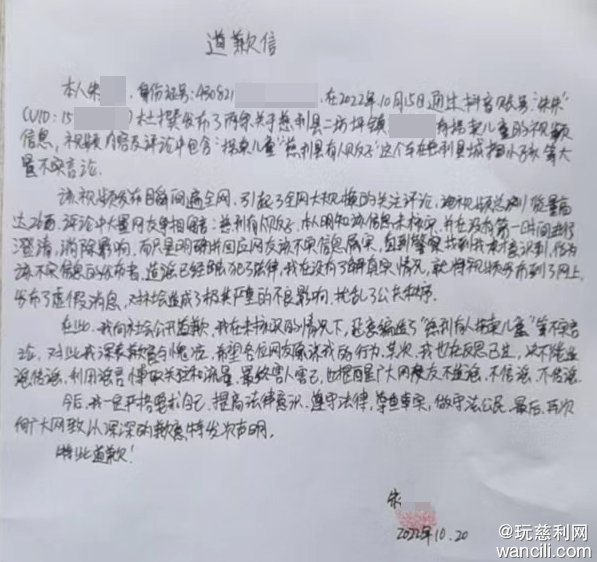 道歉信
本人朱 , 身份证号: 430821 , 在2022年10月15日通过抖音账号:"朱朱"
(UID: 15 ) 杜撰发布了两条关于慈利县二坊坪镇, 有拐卖儿童的视频
信息, 视频内容及评论中包含:"拐卖儿童""慈利县有人贩子""这个车在慈利县城抓小孩"等大
量不实言论。
该视频发布后瞬间遍全网, 引起了全网大规模的关注评论, 视频总浏览量高
达 评论中大量网友争相留言: 慈利有人贩子。本人明知该信息未核实, 并在没有第一时间进行
澄清, 消除影响, 而只是明确并回应网友该不实信息属实, 直到警察找到我才意识到, 作为
该不实信息的发布者, 造谣已经触犯了法律, 我在没有了解真实情况, 就将视频发布到了网上,
发布了虚假消息, 对社会造成了极其严重的不良影响, 扰乱了公共秩序。
在此, 我向社会公开道歉, 我在未核实的情况下, 恶意编造了"慈利有人拐卖儿童"等不实言
论, 对此我深表歉意与愧疚, 希望各位网友原谅我的行为。其次, 我也在反思己过, 决不能造
谣传谣, 利用谣言博取关注和流量, 最终害人害己, 也提醒广大网友不造谣, 不信谣, 不传谣。
今后, 我一定严格要求自己, 提高法律意识, 遵守法律, 尊重事实, 做守法公民, 最后, 再次
向广大网友致以深深的歉意, 特发此声明。
特此道歉!
朱
2022.10.20
@玩慈利网
wancili.com